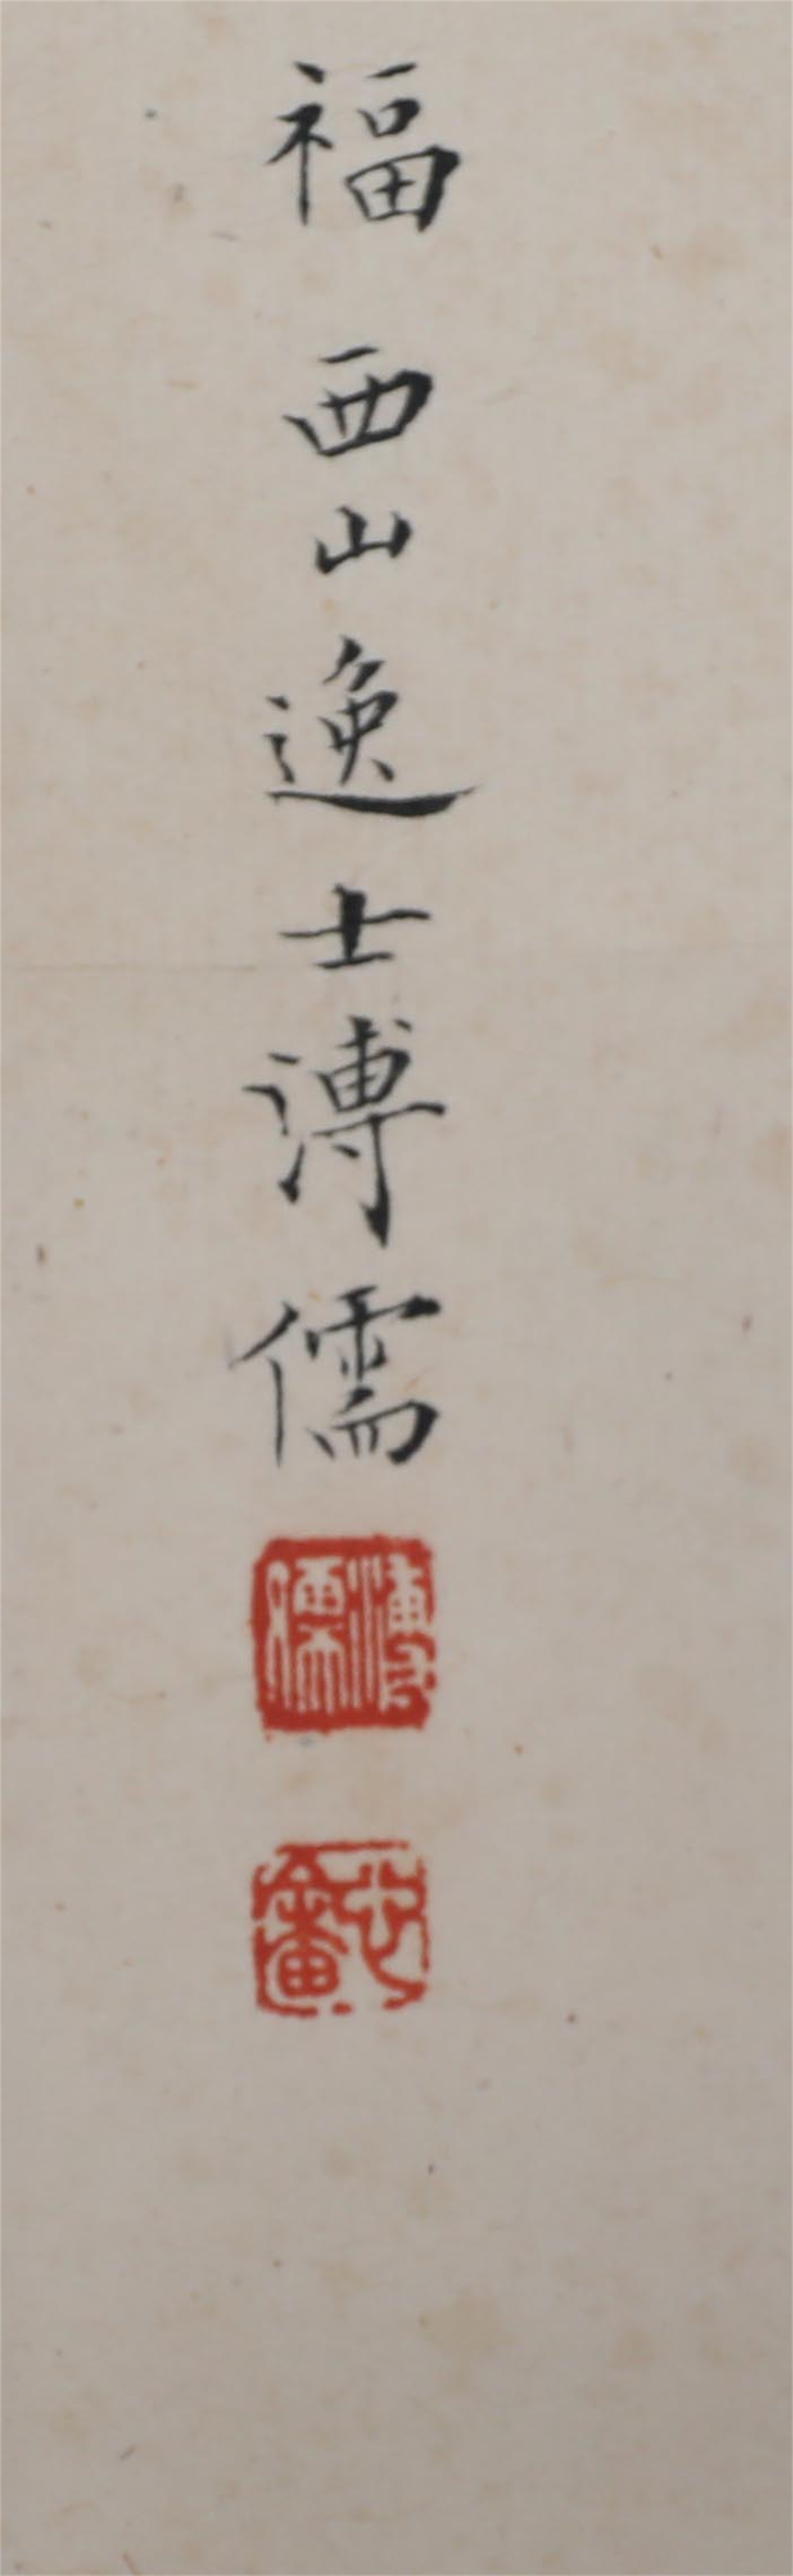 福 西山逸士溥儒
溥儒